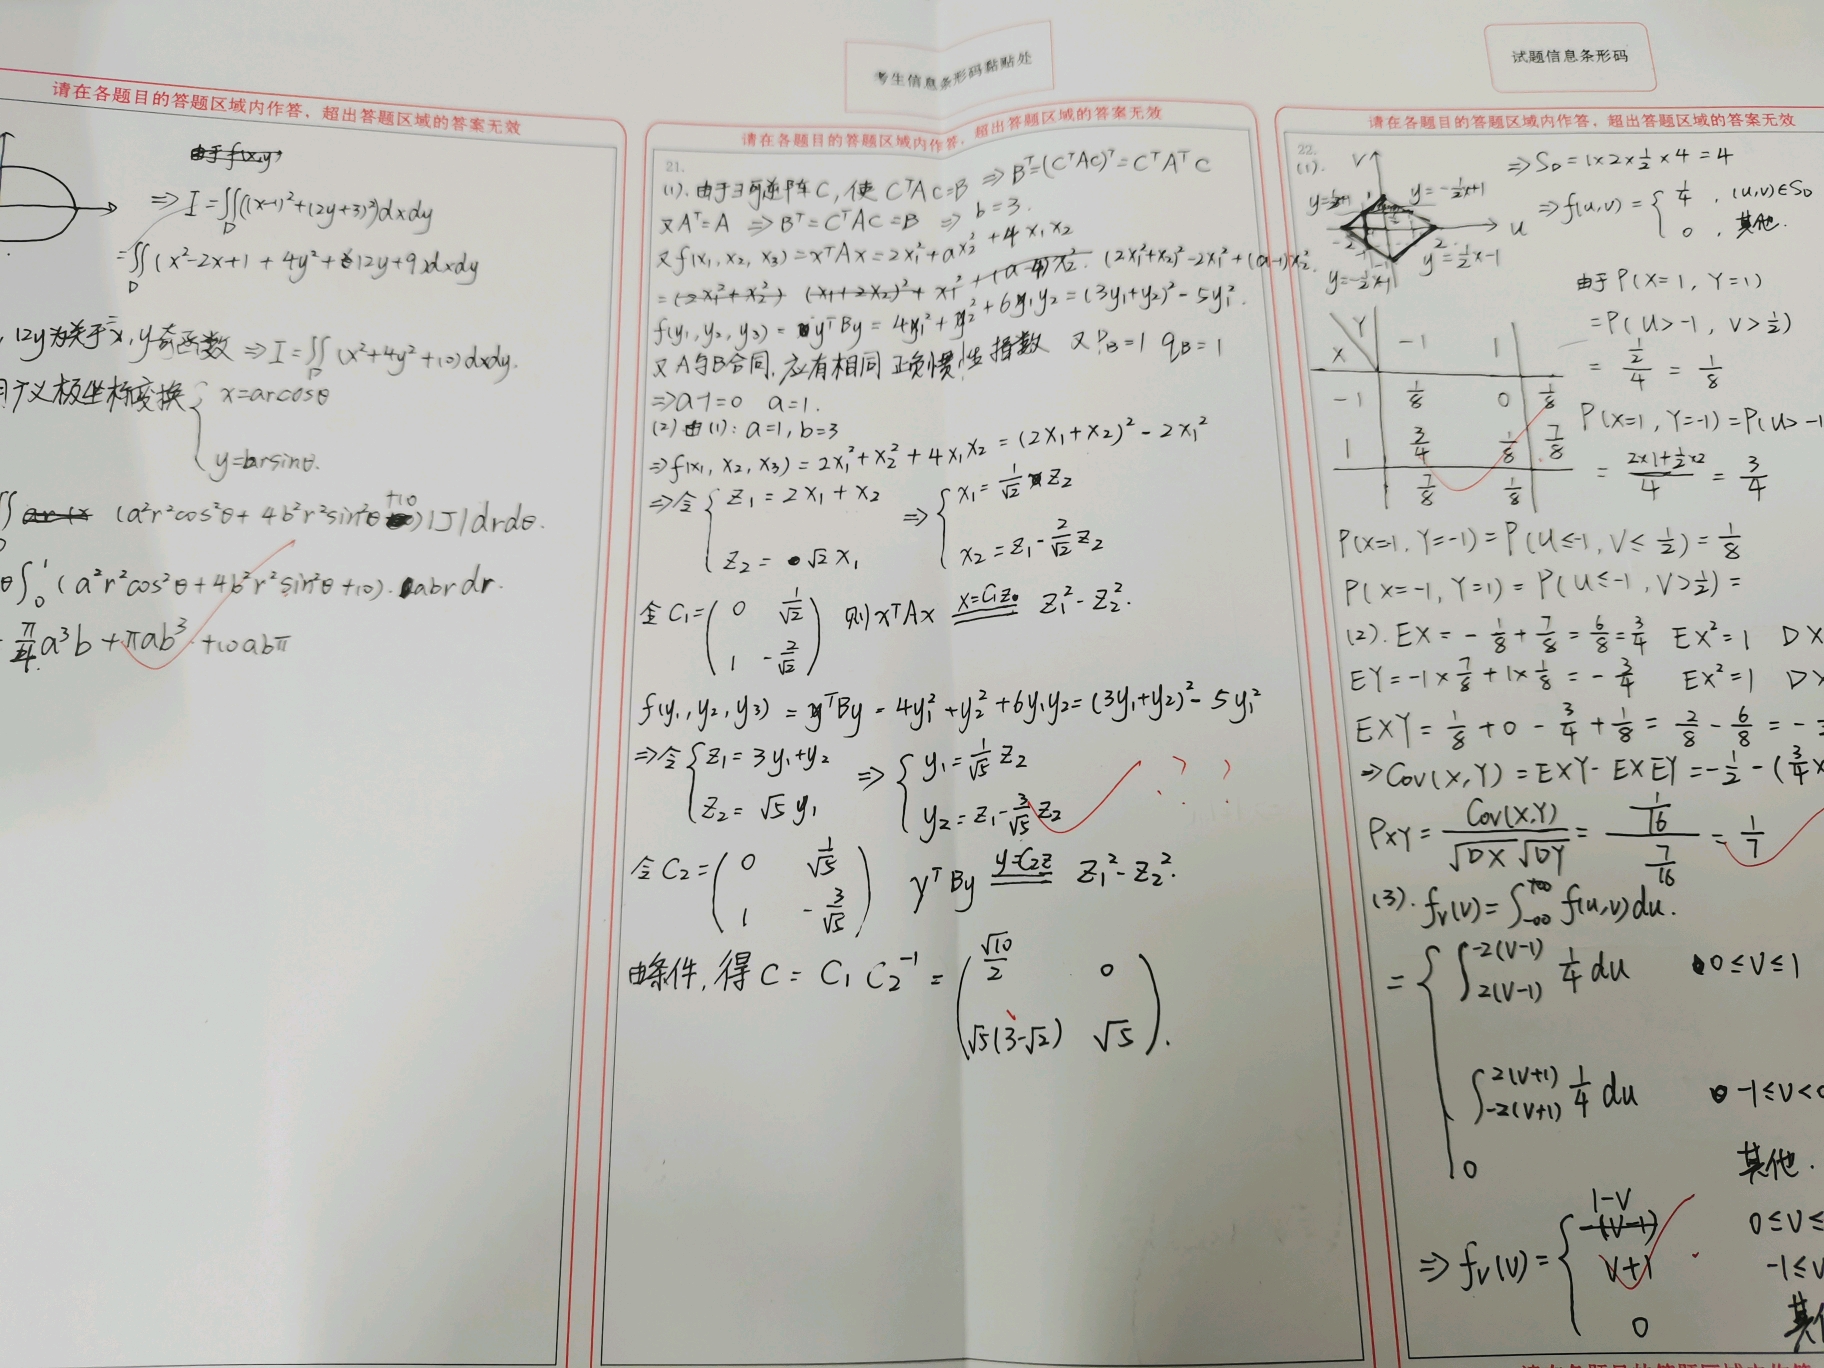 考生信息条形码黏贴处
试题信息条形码
请在各题目的答题区域内作答，超出答题区域的答案无效
由于f(x,y)
⇒ I = ∬_D ((x-1)²+(2y+3)²)dxdy
= ∬_D (x²-2x+1 + 4y²+12y+9)dxdy
, 12y为关于x, y奇函数 ⇒ I = ∬_D (x²+4y²+10)dxdy.
用广义极坐标变换 { x=arcosθ
y=brsinθ.
(a²r²cos²θ + 4b²r²sin²θ +10)|J|drdθ.
θ∫₀¹ (a²r²cos²θ+4b²r²sin²θ+10)·abrdr.
π/4 a³b + πab³ +10abπ
请在各题目的答题区域内作答，超出答题区域的答案无效
21.
(1). 由于∃可逆阵C, 使 CᵀAC=B ⇒ Bᵀ=(CᵀAC)ᵀ=CᵀAᵀC
又Aᵀ=A ⇒ Bᵀ=CᵀAC=B ⇒ b=3.
又f(x₁, x₂, x₃) = xᵀAx = 2x₁²+ax₂²+4x₁x₂
= (2x₁²+x₂²) (x₁+2x₂)²+x₁²+(a-4)x₂². (2x₁²+x₂)²-2x₁²+(a-1)x₂².
f(y₁, y₂, y₃) = yᵀBy = 4y₁²+y₂²+6y₁y₂ = (3y₁+y₂)²-5y₁².
又A与B合同, 应有相同正负惯性指数 又P_B=1 q_B=1
⇒a-1=0 a=1.
(2) 由(1): a=1, b=3
⇒f(x₁, x₂, x₃) = 2x₁²+x₂²+4x₁x₂ = (2x₁+x₂)²-2x₁²
⇒令 { z₁=2x₁+x₂ ⇒ { x₁=1/√2 z₂
z₂=√2x₁ x₂=z₁-2/√2 z₂
令C₁=(0 1/√2 则xᵀAx x=C₁z z₁²-z₂².
1 -2/√2)
f(y₁, y₂, y₃) = yᵀBy = 4y₁²+y₂²+6y₁y₂=(3y₁+y₂)²-5y₁²
⇒令 { z₁=3y₁+y₂ ⇒ { y₁=1/√5 z₂ ? ?
z₂=√5y₁ y₂=z₁-3/√5 z₂
令C₂=(0 1/√5 yᵀBy y=C₂z z₁²-z₂².
1 -3/√5)
由条件, 得C=C₁C₂⁻¹=(√10/2 0
√5(3-√2) √5).
请在各题目的答题区域内作答，超出答题区域的答案无效
22.
(1). V ⇒ S_D=1×2×½×4=4
y=-½x+1
⇒f(u,v)= { ¼ , (u,v)∈S_D
0 , 其他.
u
-2 2 y=½x-1
y=-½x-1
由于P(X=1, Y=1)
=P(U>-1, V>½)
= ½/4 = 1/8
Y
X -1 1
-1 1/8 0 1/8
1 3/4 1/8 7/8
7/8 1/8
P(X=1, Y=-1)=P(U>-1
= (2×1+½×2)/4 = 3/4
P(X=1, Y=-1)=P(U≤-1, V≤½)=1/8
P(X=-1, Y=1)=P(U≤-1, V>½)=
(2). EX=-1/8+7/8=6/8=3/4 EX²=1 DX
EY=-1×7/8+1×1/8=-3/4 EX²=1 D
EXY=1/8+0-3/4+1/8=2/8-6/8=-
⇒Cov(X,Y)=EXY-EXEY=-½-(3/4×
ρxY=Cov(X,Y)/(√DX√DY)=(1/16)/(7/16)=1/7
(3). f_V(V)=∫_{-∞}^{+∞} f(u,v)du.
= { ∫_{2(V-1)}^{-2(V-1)} ¼du 0≤V≤1
∫_{-2(V+1)}^{2(V+1)} ¼du -1≤V<0
0 其他.
⇒f_V(V)= { 1-V -(V-1) 0≤V≤
V+1 -1≤V
0 其他